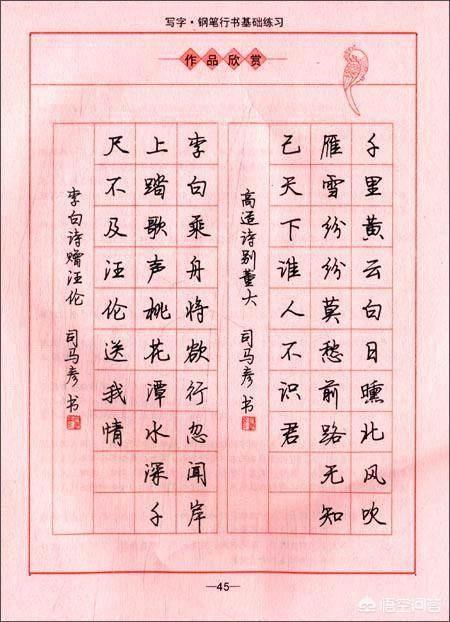 写字·钢笔行书基础练习
作品欣赏
千里黄云白日曛北风吹
雁雪纷纷莫愁前路无知
己天下谁人不识君
高适诗别董大 司马彦书
李白乘舟将欲行忽闻岸
上踏歌声桃花潭水深千
尺不及汪伦送我情
李白诗赠汪伦 司马彦书
—45—
悟空问答